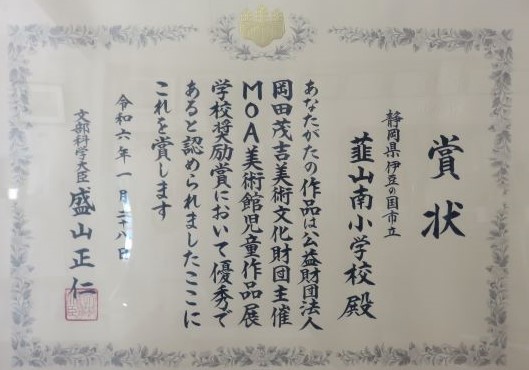 賞状
静岡県伊豆の国市立
韮山南小学校殿
あなたがたの作品は公益財団法人
岡田茂吉美術文化財団主催
MOA美術館児童作品展
学校奨励賞において優秀で
あると認められましたここに
これを賞します
令和六年一月二十八日
文部科学大臣 盛山正仁